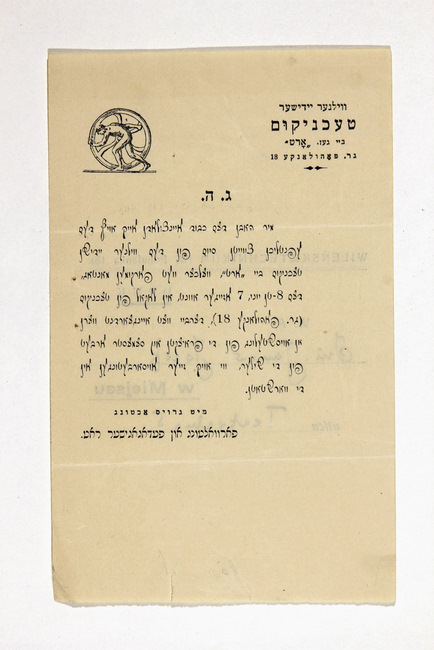 ווילנער יידישער
טעכניקום
ביי געז. „ארט”
גר. פאהולאנקע 18
ג. ה.
מיר האבן דעם כבוד איינצולאדן אייך אויף דעם
עפנטלעכן צווייטן סיום פון דעם ווילנער יידישן
טעכניקום ביי „ארט”, וועלכער וועט פארקומען מאנטאג,
דעם 8-טן יוני, 7 אזייגער אוונט, אין לאקאל פון טעכניקום
(גר. פאהולאנקע 18). דערביי וועט איינגעארדנט ווערן
אן אויסשטעלונג פון די פראיעקטן און סעמעסטער ארבעט
פון די שילער, ווי אויך זייער אויסארבעטונגען אין
די ווארשטאטן.
מיט גרויס אכטונג
פארוואלטונג און פעדאגאגישער ראט.
w Miejscu
ulica